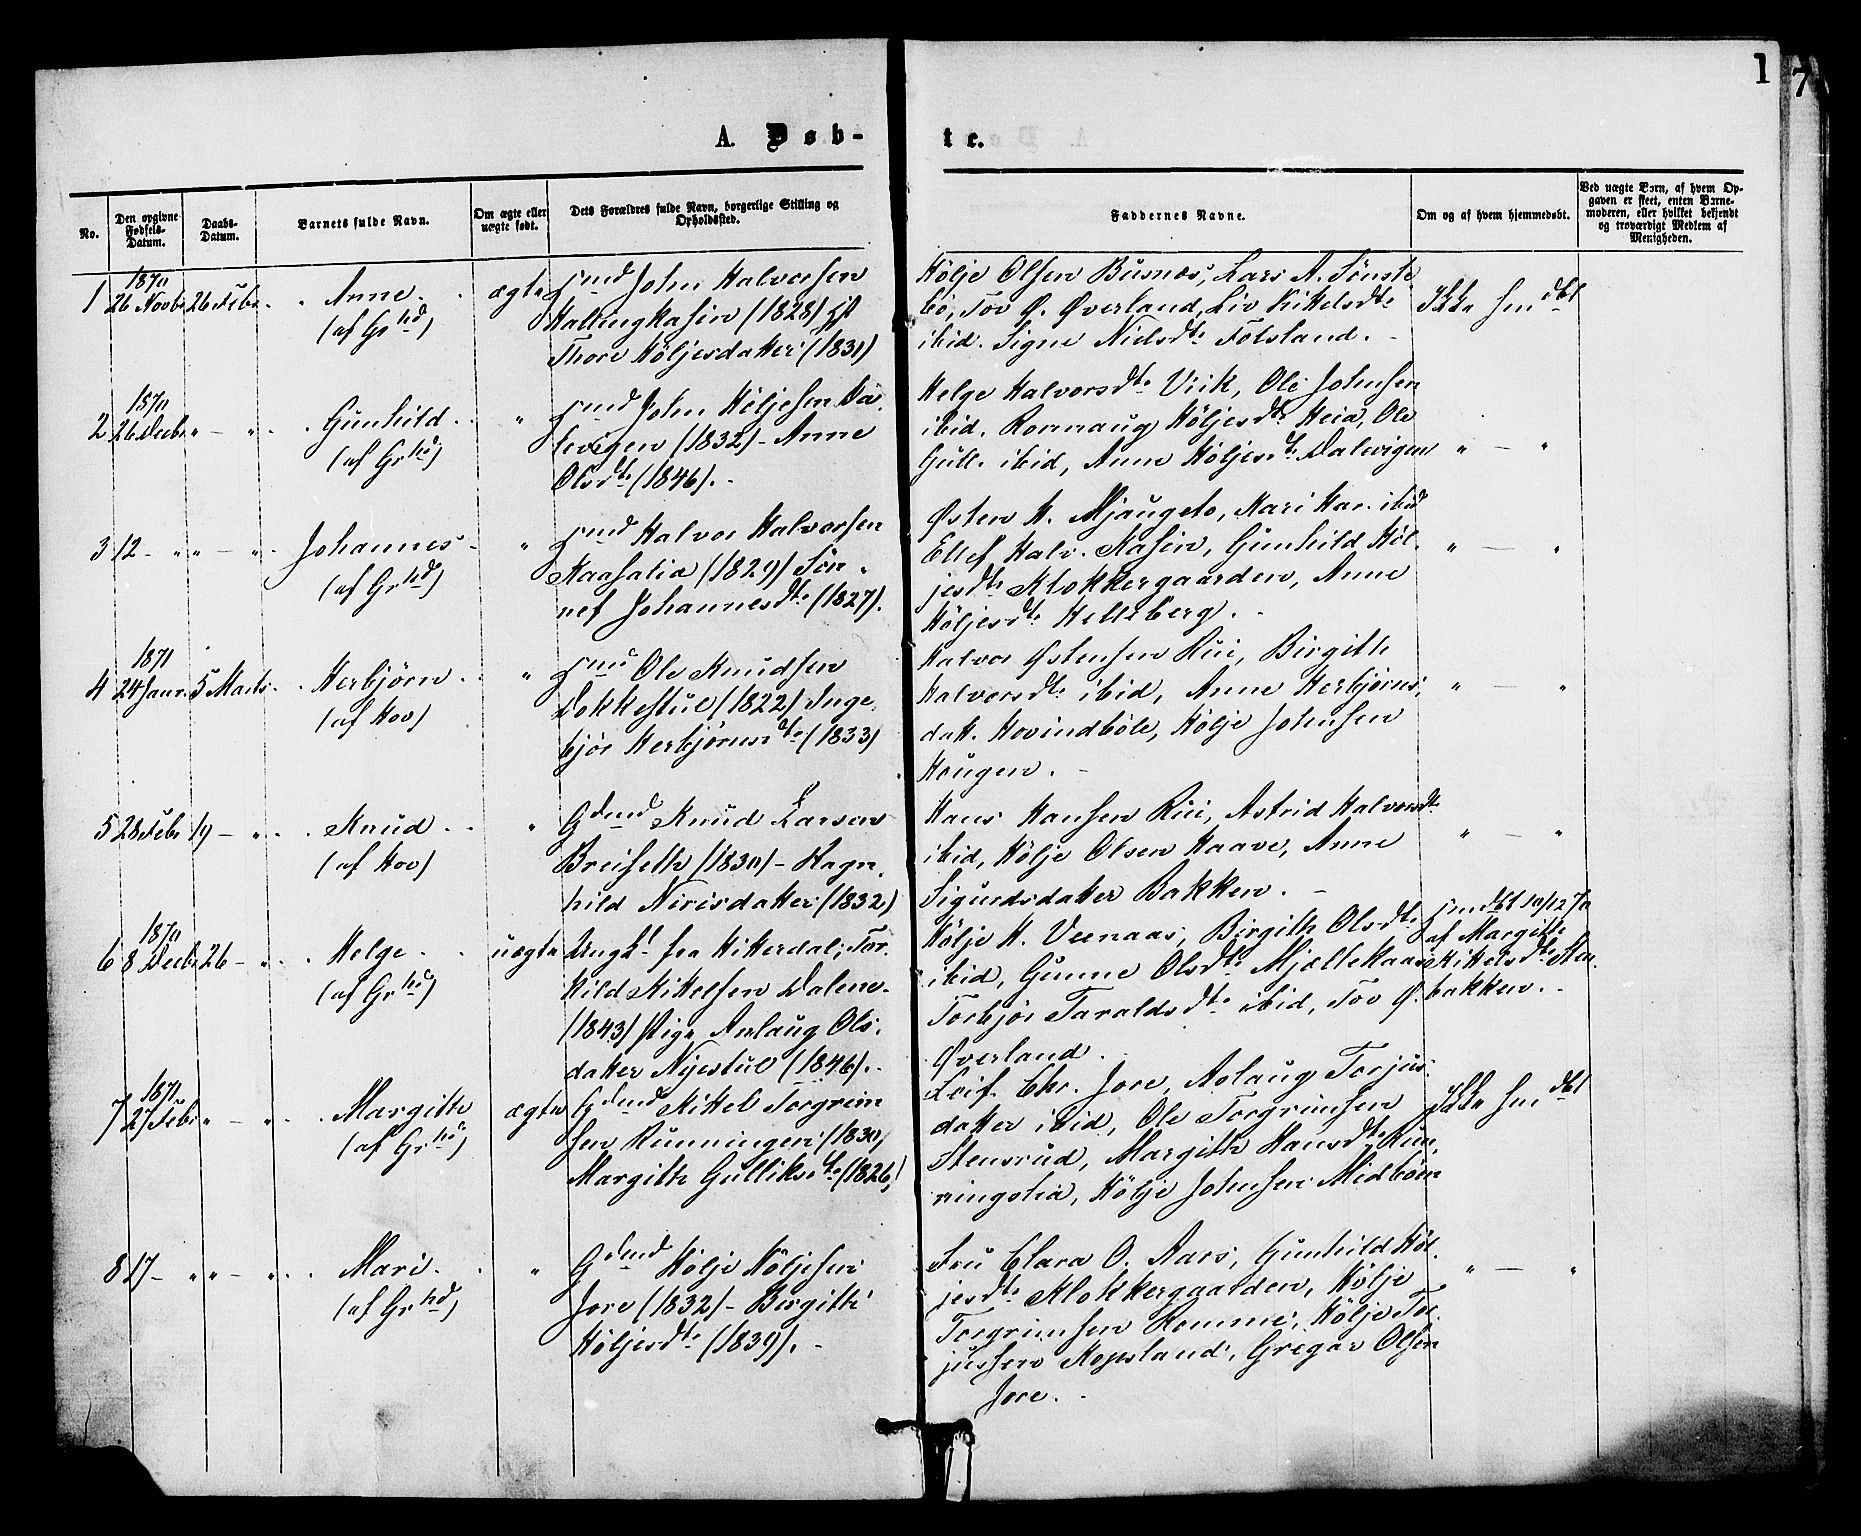 1
7
A. Døb-
te.
No.
Den opgivne Fødsels-Datum.
Daabs-Datum.
Barnets fulde Navn.
Om ægte eller uægte født.
Dets Forældres fulde Navn, borgerlige Stilling og Opholdssted.
Faddernes Navne.
Om og af hvem hjemmedøbt.
Ved uægte Børn, af hvem Opgaven er skeet, enten Barnemoderen, eller hvilket bekjendt og troværdigt Medlem af Menigheden.
1
1870
26 Novbr
26 Febr
Anne
(af Grhd)
ægte
John Halvorsen
Kallingkasin (1828)
Thore Høljesdatter (1831)
Hølje Olsen Busnæs, Lars A. Sønste
bø, Tov Ø. Øverland, Liv Kittelsdtr
ibid. Signe Nielsdtr Folsland.
Ikke hmdbt
2
1870
26 Decbr
" — "
Gunhild
(af Grhd)
"
John Høljesen Da-
levigen (1832) - Anne
Olsdtr (1846).
Helge Halvorsdtr Viik, Ole Johnsen
ibid. Ronnaug Høljesdtr Heia, Ole
Gull. ibid, Anne Høljesdtr Dalevigen
" — "
3
12 - "
" — "
Johannes
(af Grhd)
"
Halvor Halvorsen
Kaasalia (1829) Søn-
nef Johannesdtr (1827).
Østen H. Mjaugeto, Kari Har. ibid
Ellef Halv. Kasin, Gunhild Høl-
jesdtr Klokkergaarden, Anne
Høljesdtr Helleberg.
" — "
4
1871
24 Janr
5 Marts
Herbjørn
(af Hov)
"
Ole Knudsen
Dokkestul (1822) Inge-
bjør Herbjørnsdtr (1833)
Halvor Østensen Rui, Birgith
Halvorsdtr ibid, Anne Herbjørns-
datt. Hovindbøle, Hølje Johnsen
Haugen.
" — "
5
28 Febr
19 — "
Knud
(af Hov)
"
Gdmd Knud Larsen
Breiseth (1830) - Ragn-
hild Nirisdatter (1832)
Hans Hansen Rui, Astrid Halvorsdtr
ibid, Hølje Olsen Haave, Anne
Sigurdsdatter Bakken.
" — "
6
1870
8 Decbr
26 — "
Helge
(af Grhd)
uægte
Ungk. fra Hitterdal, Tor-
kild Kittelsen Dalene
(1843) Pige Anlaug Ols-
datter Nyestul (1846).
Hølje H. Veenaas, Birgith Olsdtr
ibid, Gunne Olsdtr Mjellekaas
Torbjør Taraldsdtr ibid, Tov Ø.
Øverland.
hmdbt 10/12 70
af Margith
Kittelsdtr Sten-
bakken.
7
1871
27 Febr
" — "
Margithe
(af Grhd)
ægte
Gdmd Kittel Torgrim-
sen Runningen (1830)
Margithe Gulliksdtr (1826)
Leif Chr. Jore, Aslaug Torjus-
datter ibid, Ole Torgrimsen
Stensrud, Margith Hansdtr Run-
ningslia, Hølje Johnsen Midbøen
Ikke hmdbt
8
17 - "
" — "
Mari
(af Grhd)
"
Gdmd Hølje Høljesen
Jore (1832) - Birgith
Høljesdtr (1839).
Fru Clara O. Aars, Gunhild Høl-
jesdtr Klokkergaarden, Hølje
Torgrimsen Romme, Hølje Tor-
jussen Kopsland, Gregar Olsen
Jore.
" — "